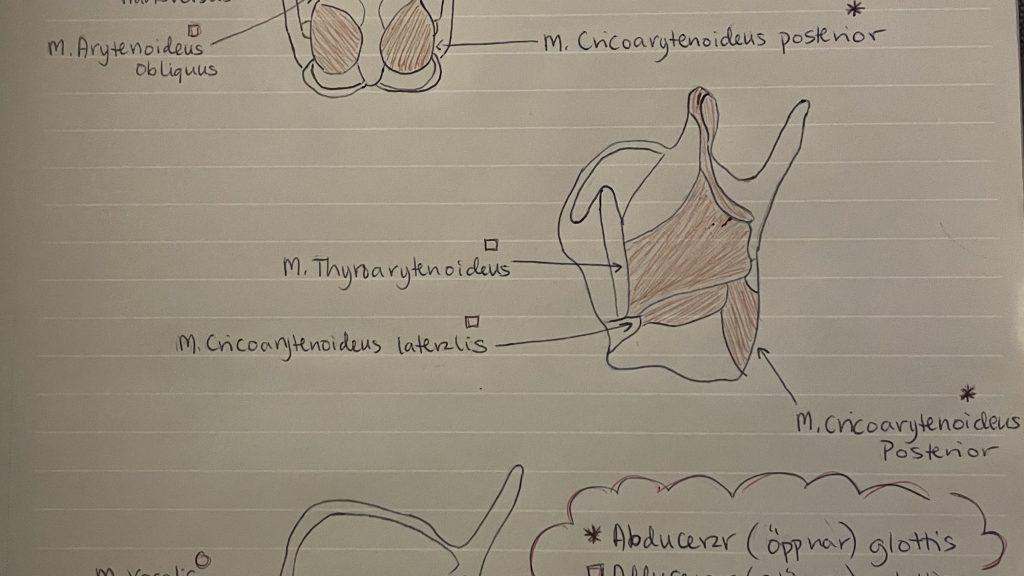 M. Arytenoideus
Obliquus
M. Cricoarytenoideus posterior
M. Thyroarytenoideus
M. Cricoarytenoideus lateralis
M. Cricoarytenoideus
Posterior
* Abducerar (öppnar) glottis